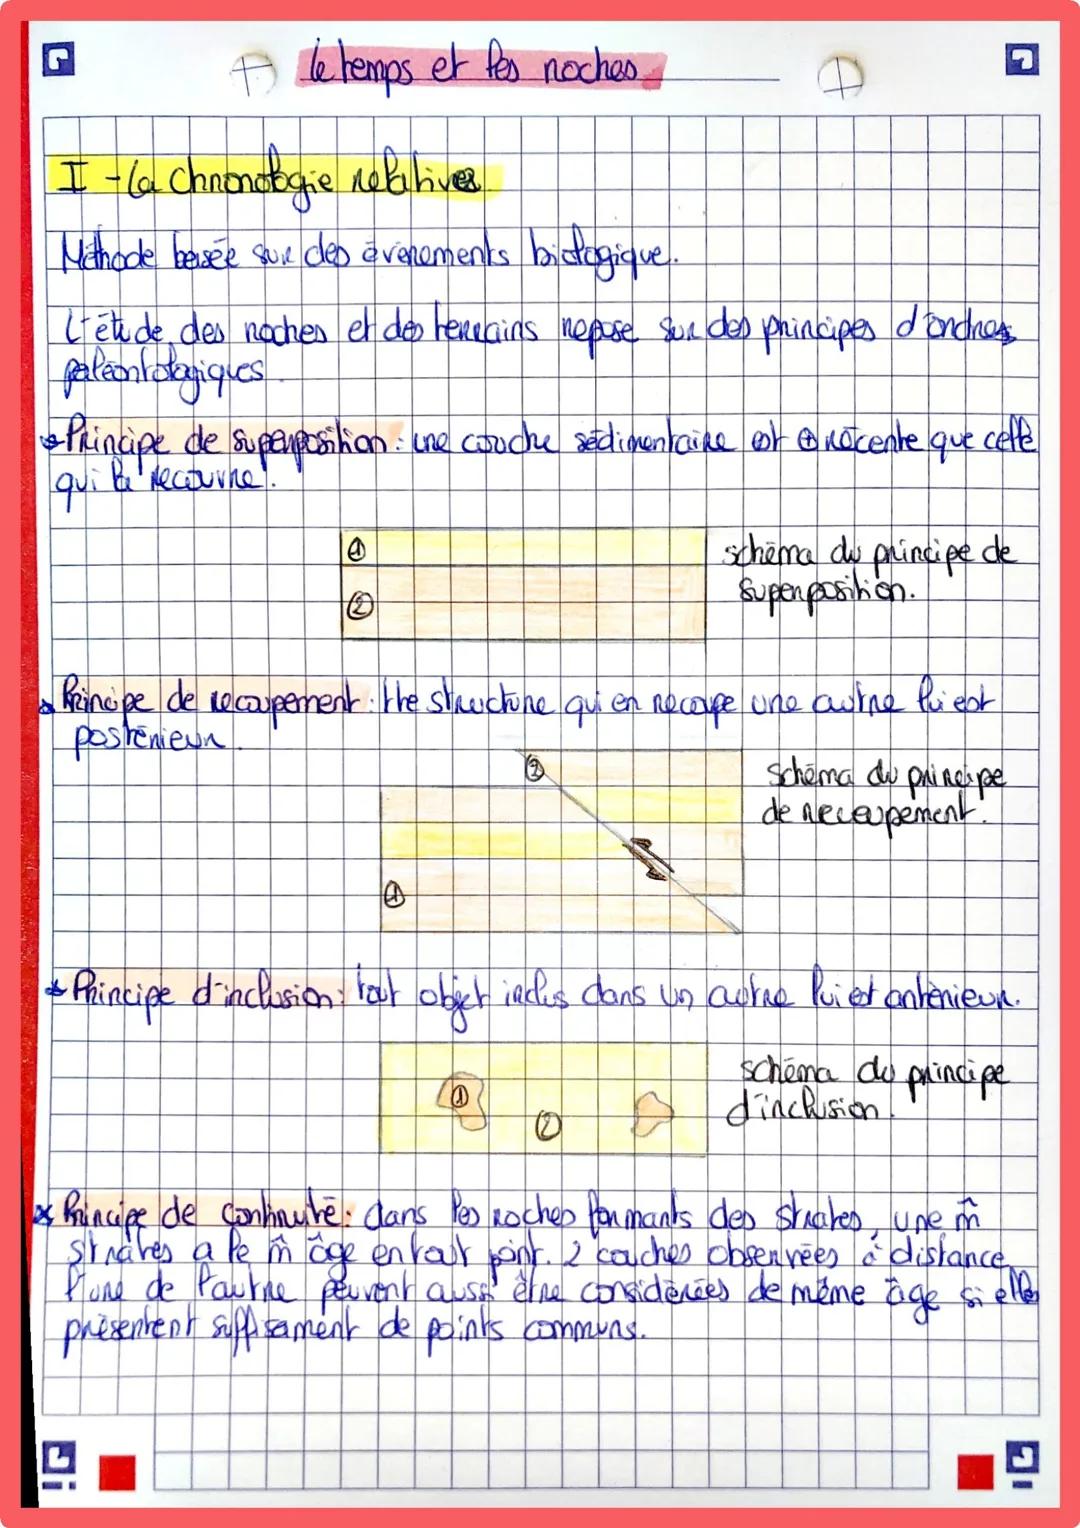 le temps et les roches
I - La chronologie relatives
Méthode basée sur des évènements biologique.
L'étude des roches et des terrains repose sur des principes d'ordres
paléontologiques
Principe de superposition : une couche sédimentaire est ⊕ récente que celle
qui la recouvre.
①
②
schéma du principe de
superposition.
Principe de recoupement : tte structure qui en recoupe une autre lui est
postérieur.
②
①
Schéma du principe
de recoupement.
Principe d'inclusion : tout objet inclus dans un autre lui est antérieur.
①
②
schéma du principe
d'inclusion.
Principe de continuité : dans les roches formants des strates, une m̂
strates a le m̂ âge en tout point. 2 couches observées à distance
l'une de l'autre peuvent aussi être considérées de même âge si elles
présentent suffisament de points communs.